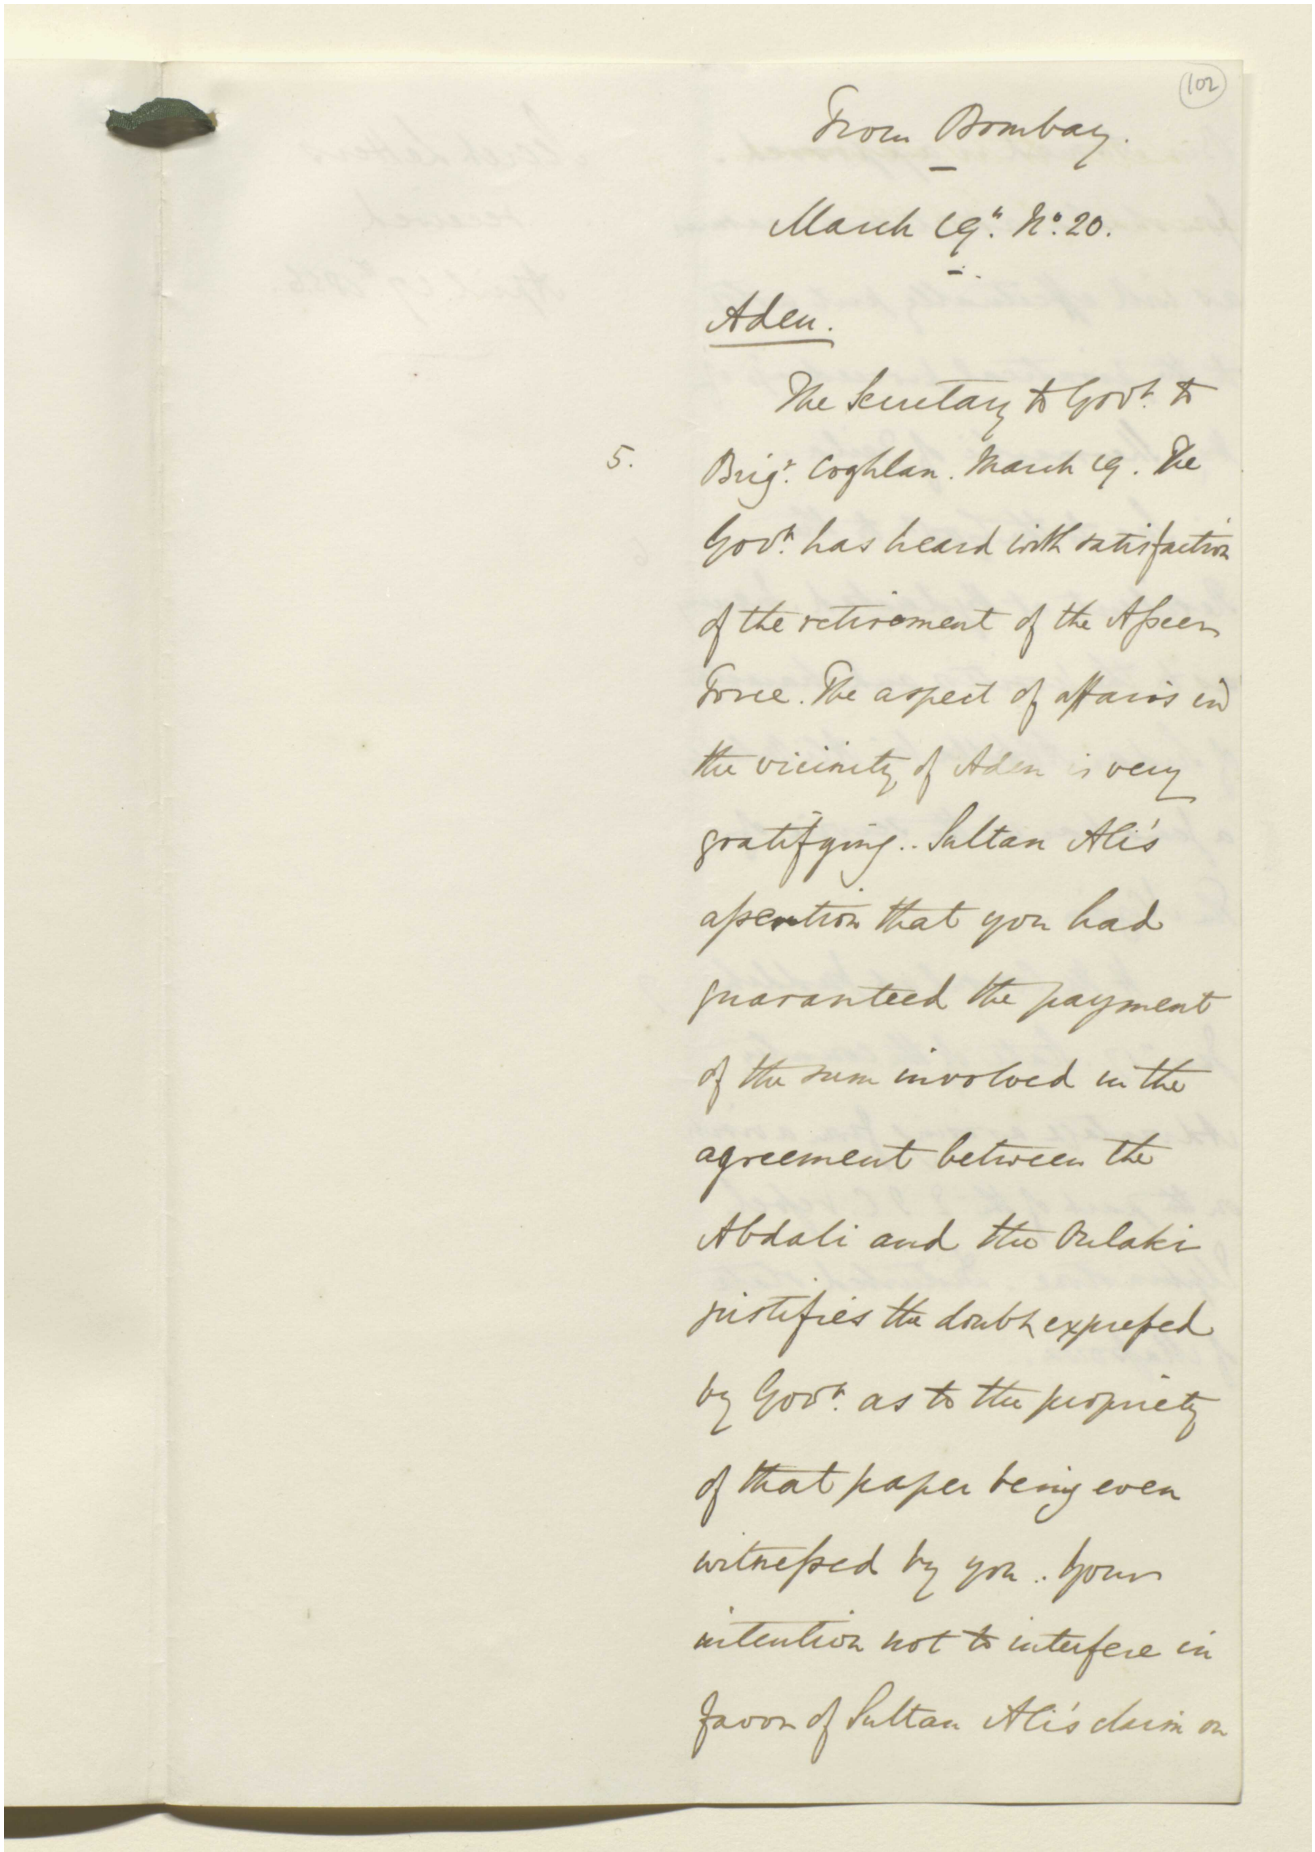 102
From Bombay.
March 19th. No. 20.
Aden.
The Secretary to Govt. to
5.
Brigr. Coghlan. March 19. The
Govt. has heard with satisfaction
of the retirement of the Asseer
Force. The aspect of affairs in
the vicinity of Aden is very
gratifying.. Sultan Ali's
assertion that you had
guaranteed the payment
of the sum involved in the
agreement between the
Abdali and the Oulaki
justifies the doubt expressed
by Govt. as to the propriety
of that paper being even
witnessed by you. Your
intention not to interfere in
favor of Sultan Ali's claim on